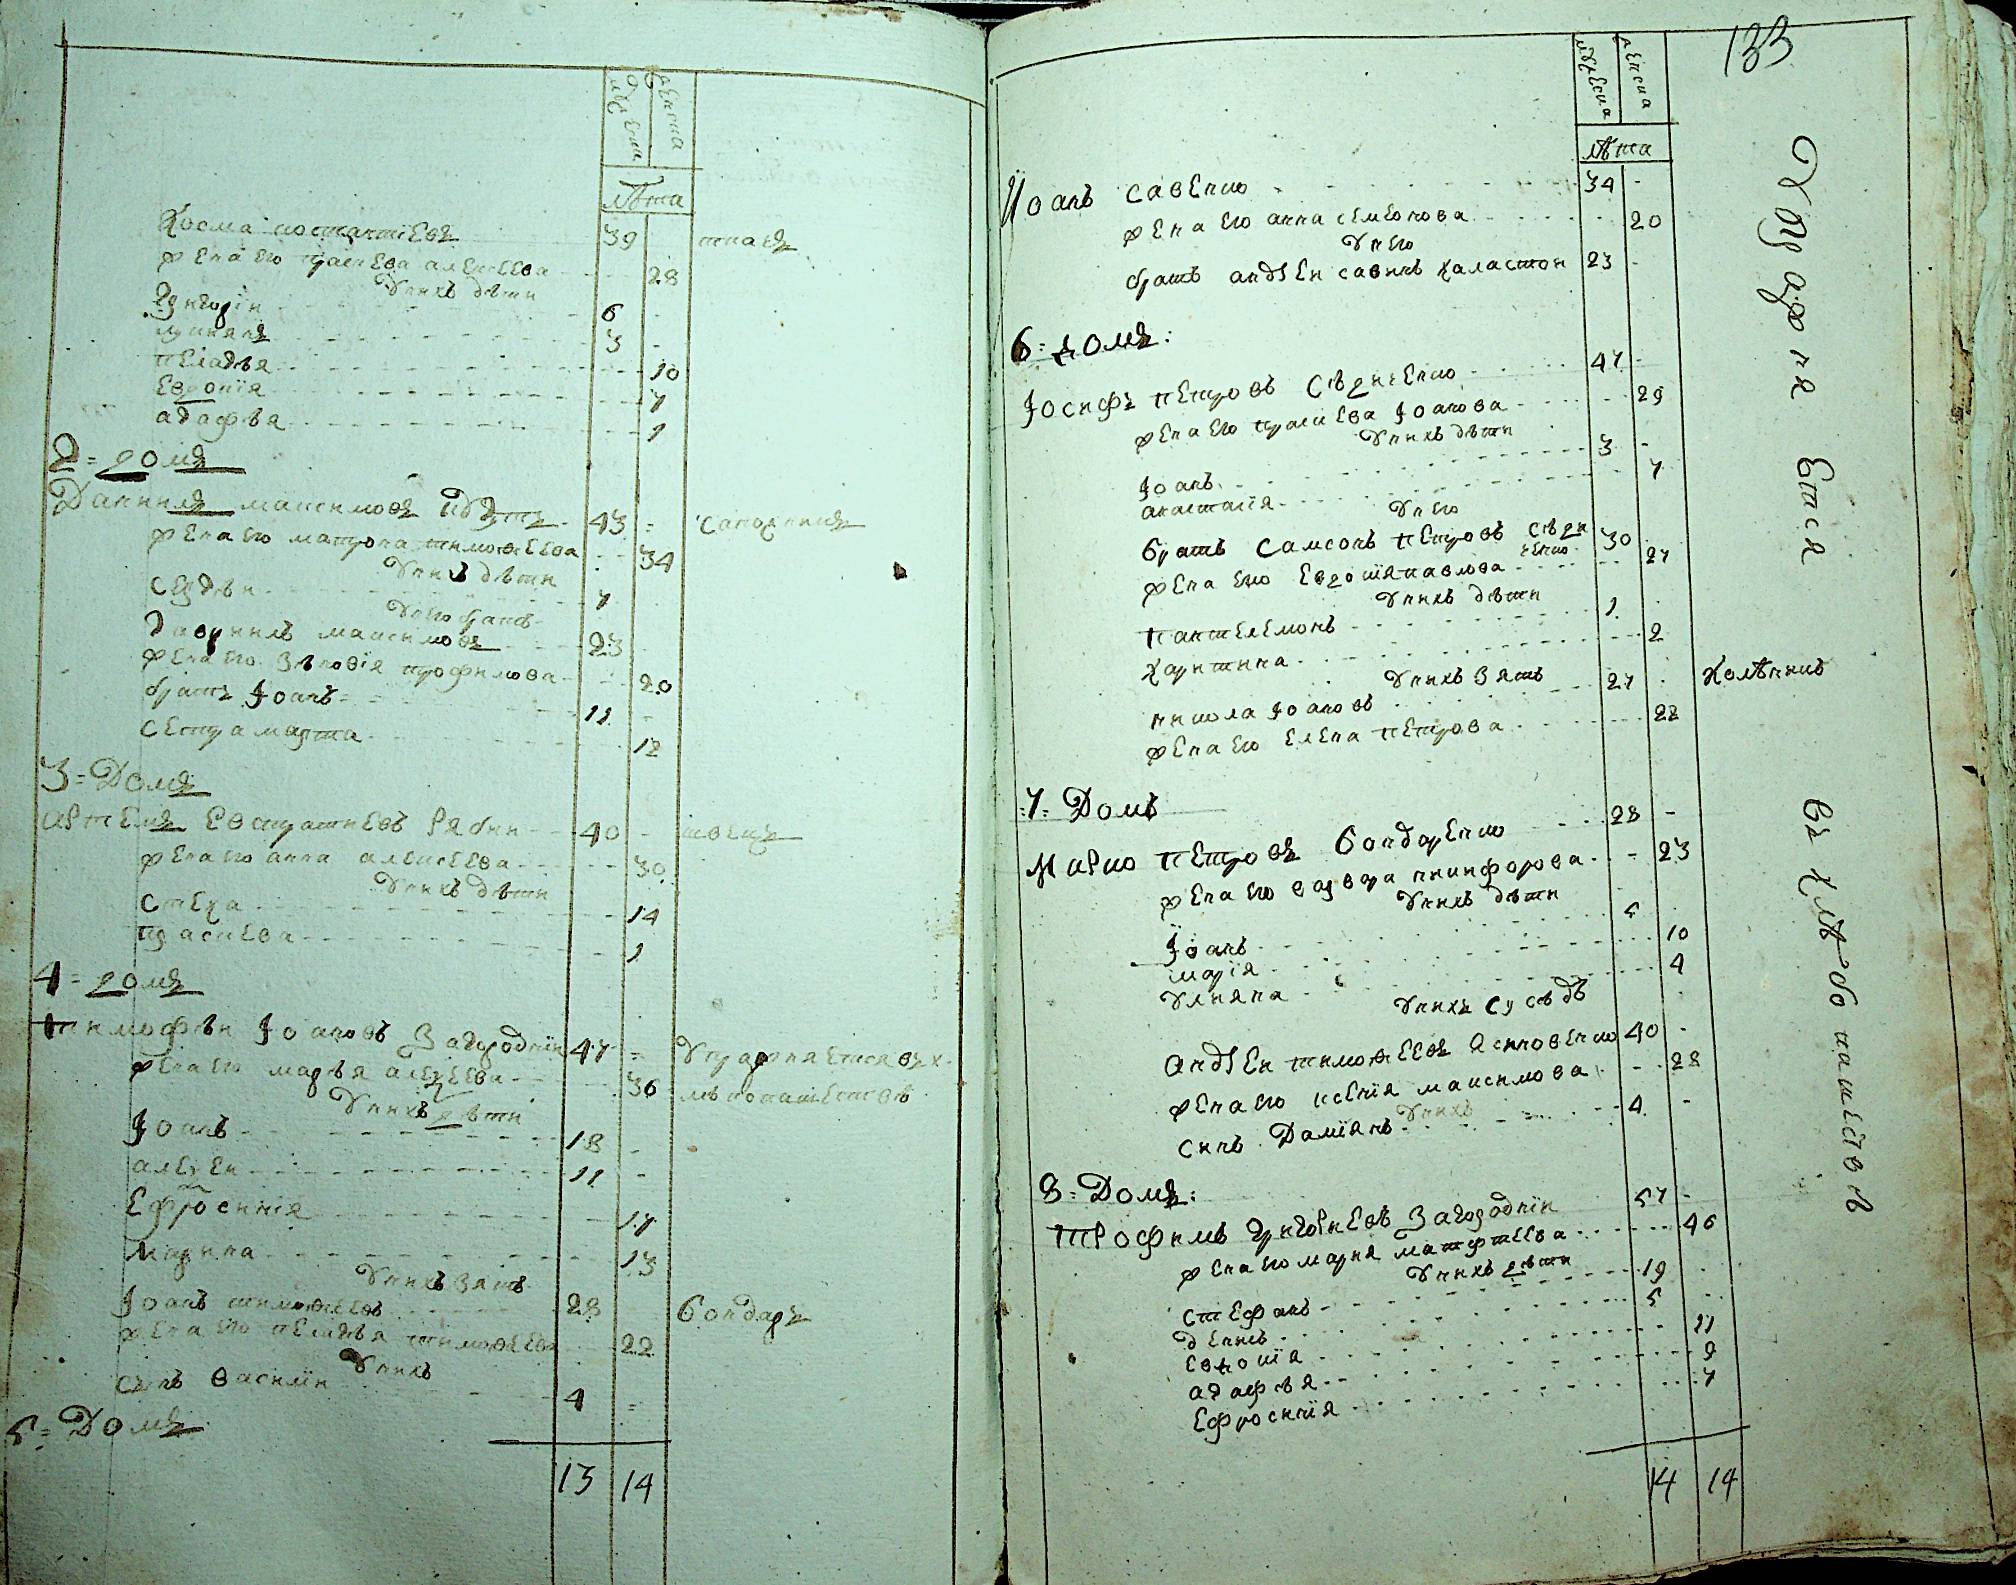 мужеска
женска
лѣта
Косма костантіевъ 39 ткачъ
жена его праскева алексеева 28
У нихъ дѣти
Григорій 6
лукянъ 3
пелагѣя 10
Евдокія 7
агафѣя 1
2 = домъ
Даниилъ максимовъ 43 = Сапожникъ
жена его матрона тимофеева 34
У нихъ дѣти
Сергѣй 7
У него братъ
гавриилъ максимовъ 23
жена его Зѣновія трофимова 20
братъ Іоанъ 11
Сестра марта 12
3 = Домъ
артемъ Евстратиевъ Рябий 40 швецъ
жена его анна алексеева 30
У нихъ дѣти
Стеха 14
праскева 1
4 = домъ
тимофѣй Іоановъ Загородній 47 = Упражняется въ х-
жена его марѣя алексеева 36 лѣбопашествѣ
У нихъ дѣти
Іоанъ 18
алексей 11
Ефросинія 17
марина 13
У нихъ зять
Іоанъ тимофеевъ 28 бондаръ
жена его пелагѣя тимофеева 22
У нихъ
Сынъ василій 4 =
5 = Домъ
13 14
133
мужеска
женска
лѣта
Іоанъ савенко 34
жена его анна семионова 20
У него
братъ андрей савинъ халастой 23
6 = домъ:
Іосифъ петровъ 47
жена его праскева Іоанова 29
У нихъ дѣти
Іоанъ 3
анастасія 7
У него
братъ самсонъ петровъ 30
жена его Евдокія павлова 27
У нихъ дѣти
пантелемонъ 1
харитина 2
У нихъ зять
никола Іоановъ 27 Колѣсникъ
жена его елена петрова 22
7 = Домъ
марко петровъ бондаренко 28
жена его варвара никифорова 23
У нихъ дѣти
Іоанъ 5
марія 10
Улияна 4
У нихъ сусѣдъ
андрей тимофеевъ Ясиновенко 40
жена его ксенія максимова 28
У нихъ
синъ Даміянъ 4
8 = Домъ:
трофимъ григориевъ Загородній 57
жена его мария матфтеева 46
У нихъ дѣти
стефанъ 19
денисъ 5
Евдокія 11
агафѣя 9
Ефросинія 7
14 14
Упражняется въ хлѣбопашествѣ